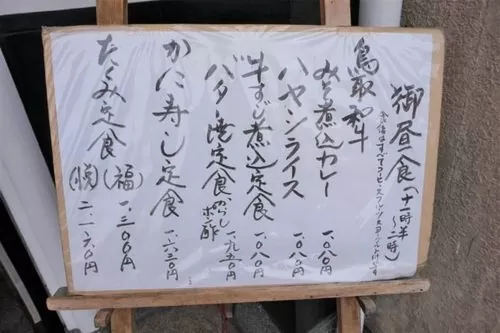 御昼食(十一時半〜二時)
鳥取和牛
みそ煮込カレー 一.〇八〇円
ハヤシライス 一.〇八〇円
牛すじ煮込定食 一.〇八〇円
バター焼定食(からしポン酢) 一.九五〇円
かに寿し定食 一.六三〇円
たくみ定食(福) 一.三〇〇円
(悦) 二.一六〇円